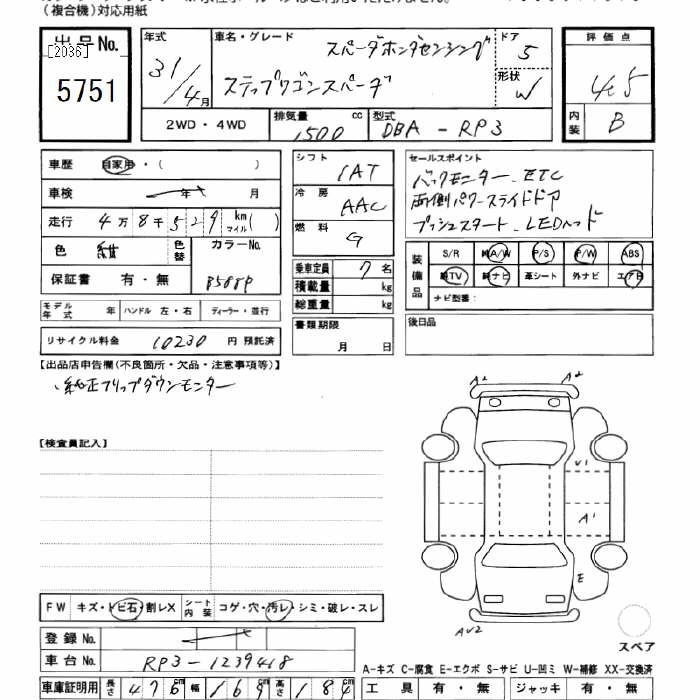 (複合機)対応用紙
出品No.
[2036]
5751
年式
31/4月
車名・グレード
スパーダホンダセンシング
ステップワゴンスパーダ
ドア
5
形状
W
2WD・4WD
排気量
1500
cc
型式
DBA-RP3
評価点
4.5
内装
B
車歴
自家用・( )
車検
年 月
走行
4万8千529km
マイル( )
色
紺
色替
カラーNo.
B588P
保証書 有・無
モデル年式 年
ハンドル 左・右
ディーラー・並行
リサイクル料金 10230 円 預託済
シフト
IAT
冷房
AAC
燃料
G
乗車定員 7名
積載量 kg
総重量 kg
書類期限
月 日
セールスポイント
バックモニター、ETC
両側パワースライドドア
プッシュスタート、LEDヘッド
装備品
S/R
純A/W
P/S
P/W
ABS
純TV
純ナビ
革シート
外ナビ
エアB
ナビ型番:
後日品
【出品店申告欄(不良箇所・欠品・注意事項等)】
純正フリップダウンモニター
【検査員記入】
A2
A2
U1
A1
E
AU2
スペア
FW キズ・トビ石・割レX
シート内装 コゲ・穴・汚レ・シミ・破レ・スレ
登録No.
車台No. RP3-1239418
車庫証明用
長さ 476cm
幅 169cm
高さ 184cm
A-キズ C-腐食 E-エクボ S-サビ U-凹ミ W-補修 XX-交換済
工具 有・無
ジャッキ 有・無